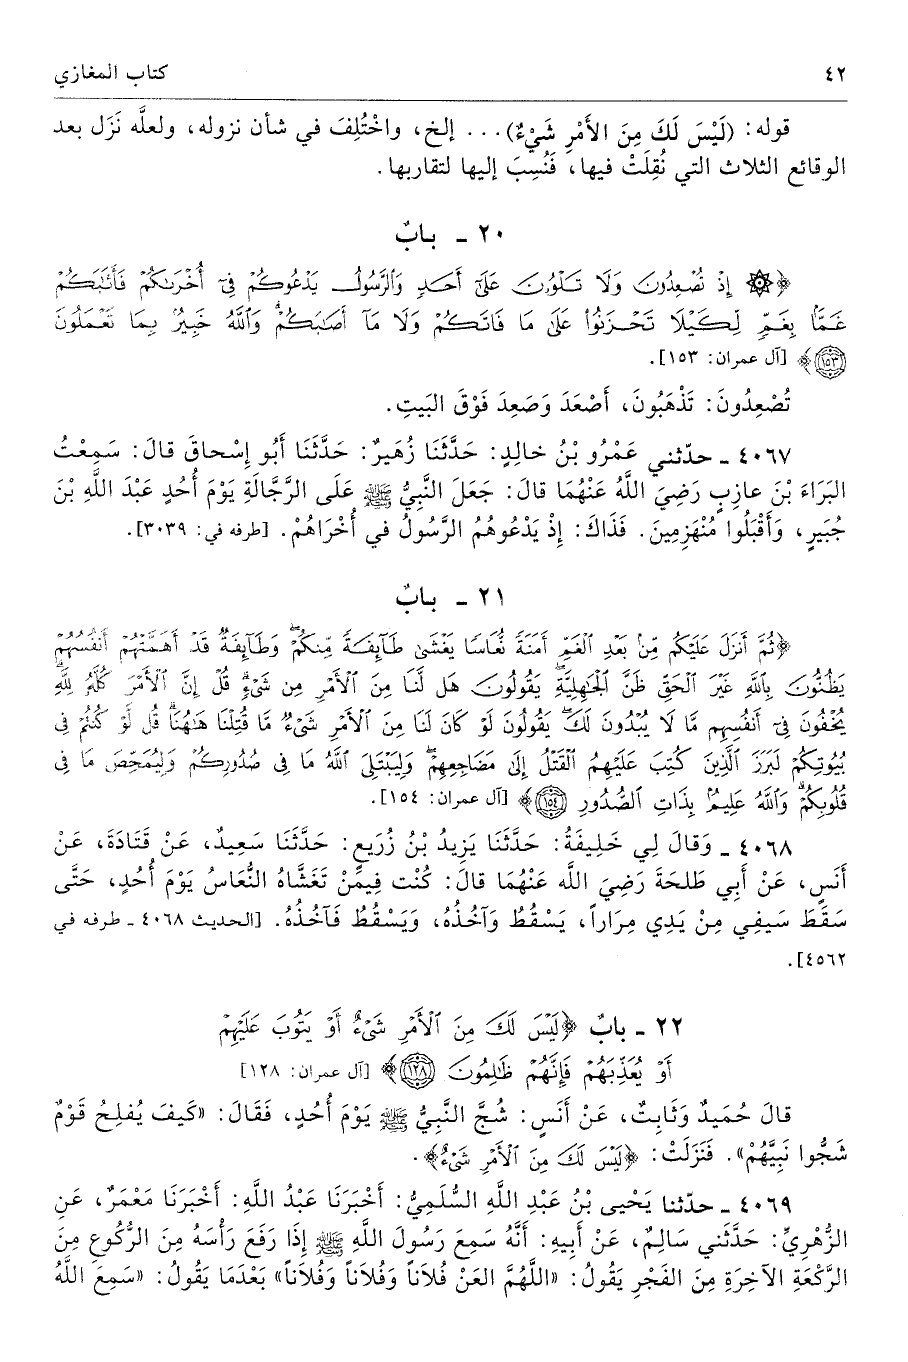 ٤٢
كتاب المغازي
قوله: (لَيْسَ لَكَ مِنَ الأَمْرِ شَيْءٌ)... إلخ، واخْتُلِفَ في شأن نزوله، ولعلَّه نَزَل بعد
الوقائع الثلاث التي نُقِلَتْ فيها، فَنُسِبَ إليها لتقاربها.
٢٠ ـ بابٌ
﴿۞ إِذْ تُصْعِدُونَ وَلَا تَلْوُۥنَ عَلَىٰٓ أَحَدٍ وَٱلرَّسُولُ يَدْعُوكُمْ فِىٓ أُخْرَىٰكُمْ فَأَثَٰبَكُمْ
غَمًّۢا بِغَمٍّ لِّكَيْلَا تَحْزَنُوا۟ عَلَىٰ مَا فَاتَكُمْ وَلَا مَآ أَصَٰبَكُمْ ۗ وَٱللَّهُ خَبِيرٌۢ بِمَا تَعْمَلُونَ
﴿١٥٣﴾﴾ [آل عمران: ١٥٣].
تُصْعِدُونَ: تَذْهَبُونَ، أَصْعَدَ وَصَعِدَ فَوْقَ البَيتِ.
٤٠٦٧ ـ حدّثني عَمْرُو بْنُ خالِدٍ: حَدَّثَنَا زُهَيرٌ: حَدَّثَنَا أَبُو إِسْحاقَ قالَ: سَمِعْتُ
البَرَاءَ بْنَ عازِبٍ رَضِيَ اللَّهُ عَنْهُمَا قالَ: جَعَلَ النَّبِيُّ ﷺ عَلَى الرَّجَّالَةِ يَوْمَ أُحُدٍ عَبْدَ اللَّهِ بْنَ
جُبَيرٍ، وَأَقْبَلُوا مُنْهَزِمِينَ. فَذَاكَ: إِذْ يَدْعُوهُمُ الرَّسُولُ في أُخْرَاهُمْ. [طرفه في: ٣٠٣٩].
٢١ ـ بابٌ
﴿ثُمَّ أَنزَلَ عَلَيْكُم مِّنۢ بَعْدِ ٱلْغَمِّ أَمَنَةً نُّعَاسًا يَغْشَىٰ طَآئِفَةً مِّنكُمْ ۖ وَطَآئِفَةٌ قَدْ أَهَمَّتْهُمْ أَنفُسُهُمْ
يَظُنُّونَ بِٱللَّهِ غَيْرَ ٱلْحَقِّ ظَنَّ ٱلْجَٰهِلِيَّةِ ۖ يَقُولُونَ هَل لَّنَا مِنَ ٱلْأَمْرِ مِن شَىْءٍ ۗ قُلْ إِنَّ ٱلْأَمْرَ كُلَّهُۥ لِلَّهِ ۗ
يُخْفُونَ فِىٓ أَنفُسِهِم مَّا لَا يُبْدُونَ لَكَ ۖ يَقُولُونَ لَوْ كَانَ لَنَا مِنَ ٱلْأَمْرِ شَىْءٌ مَّا قُتِلْنَا هَٰهُنَا ۗ قُل لَّوْ كُنتُمْ فِى
بُيُوتِكُمْ لَبَرَزَ ٱلَّذِينَ كُتِبَ عَلَيْهِمُ ٱلْقَتْلُ إِلَىٰ مَضَاجِعِهِمْ ۖ وَلِيَبْتَلِىَ ٱللَّهُ مَا فِى صُدُورِكُمْ وَلِيُمَحِّصَ مَا فِى
قُلُوبِكُمْ ۗ وَٱللَّهُ عَلِيمٌۢ بِذَاتِ ٱلصُّدُورِ ﴿١٥٤﴾﴾ [آل عمران: ١٥٤].
٤٠٦٨ ـ وَقالَ لِي خَلِيفَةُ: حَدَّثَنَا يَزِيدُ بْنُ زُرَيعٍ: حَدَّثَنَا سَعِيدٌ، عَنْ قَتَادَةَ، عَنْ
أَنَسٍ، عَنْ أَبِي طَلحَةَ رَضِيَ الله عَنْهُمَا قالَ: كُنْت فِيمَنْ تَغَشَّاهُ النُّعَاسُ يَوْمَ أُحُدٍ، حَتَّى
سَقَطَ سَيفِي مِنْ يَدِي مِرَاراً، يَسْقُطُ وَآخُذُهُ، وَيَسْقُطُ فَآخُذُهُ. [الحديث ٤٠٦٨ ـ طرفه في
٤٥٦٢].
٢٢ ـ بابٌ ﴿لَيْسَ لَكَ مِنَ ٱلْأَمْرِ شَىْءٌ أَوْ يَتُوبَ عَلَيْهِمْ
أَوْ يُعَذِّبَهُمْ فَإِنَّهُمْ ظَٰلِمُونَ ﴿١٢٨﴾﴾ [آل عمران: ١٢٨]
قالَ حُمَيدٌ وَثَابِتٌ، عَنْ أَنَسٍ: شُجَّ النَّبِيُّ ﷺ يَوْمَ أُحُدٍ، فَقَالَ: «كَيفَ يُفلِحُ قَوْمٌ
شَجُّوا نَبِيَّهُمْ». فَنَزَلَتْ: ﴿لَيْسَ لَكَ مِنَ ٱلْأَمْرِ شَىْءٌ﴾.
٤٠٦٩ ـ حدّثنا يَحْيى بْنُ عَبْدِ اللَّهِ السُّلَمِيُّ: أَخْبَرَنَا عَبْدُ اللَّهِ: أَخْبَرَنَا مَعْمَرٌ، عَنِ
الزُّهْرِيِّ: حَدَّثَنِي سَالِمٌ، عَنْ أَبِيهِ: أَنَّهُ سَمِعَ رَسُولَ اللَّهِ ﷺ إِذَا رَفَعَ رَأْسَهُ مِنَ الرُّكُوعِ مِنَ
الرَّكْعَةِ الآخِرَةِ مِنَ الفَجْرِ يَقُولُ: «اللَّهُمَّ العَنْ فُلاَناً وَفُلاَناً وَفُلاَناً» بَعْدَمَا يَقُولُ: «سَمِعَ اللَّهُ